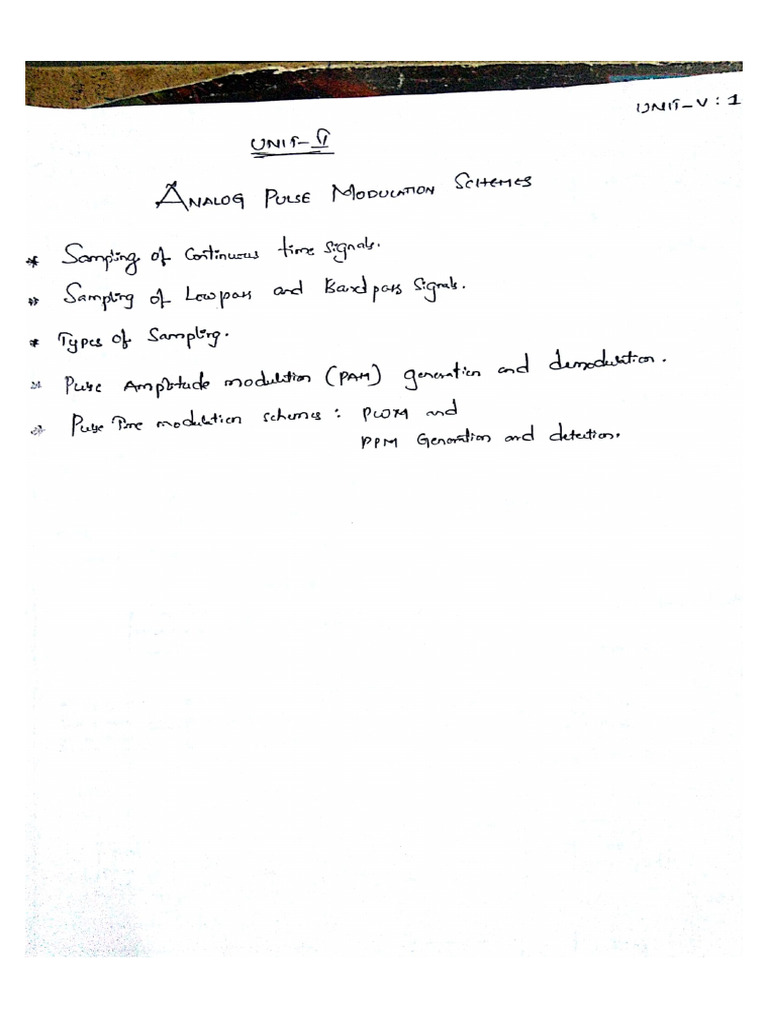 UNIT-V : 1
UNIT-V
ANALOG PULSE MODULATION SCHEMES
* Sampling of Continuous time signals.
* Sampling of Low pass and Band pass Signals.
* Types of Sampling.
* Pulse Amplitude modulation (PAM) generation and demodulation.
* Pulse Time modulation schemes : PWM and
PPM Generation and detection.